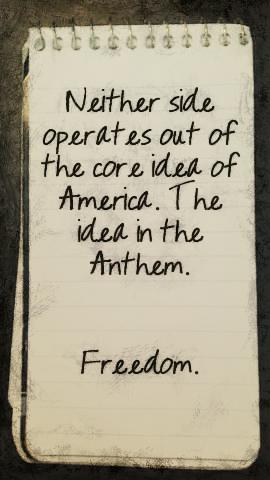 Neither side
operates out of
the core idea of
America. The
idea in the
Anthem.
Freedom.